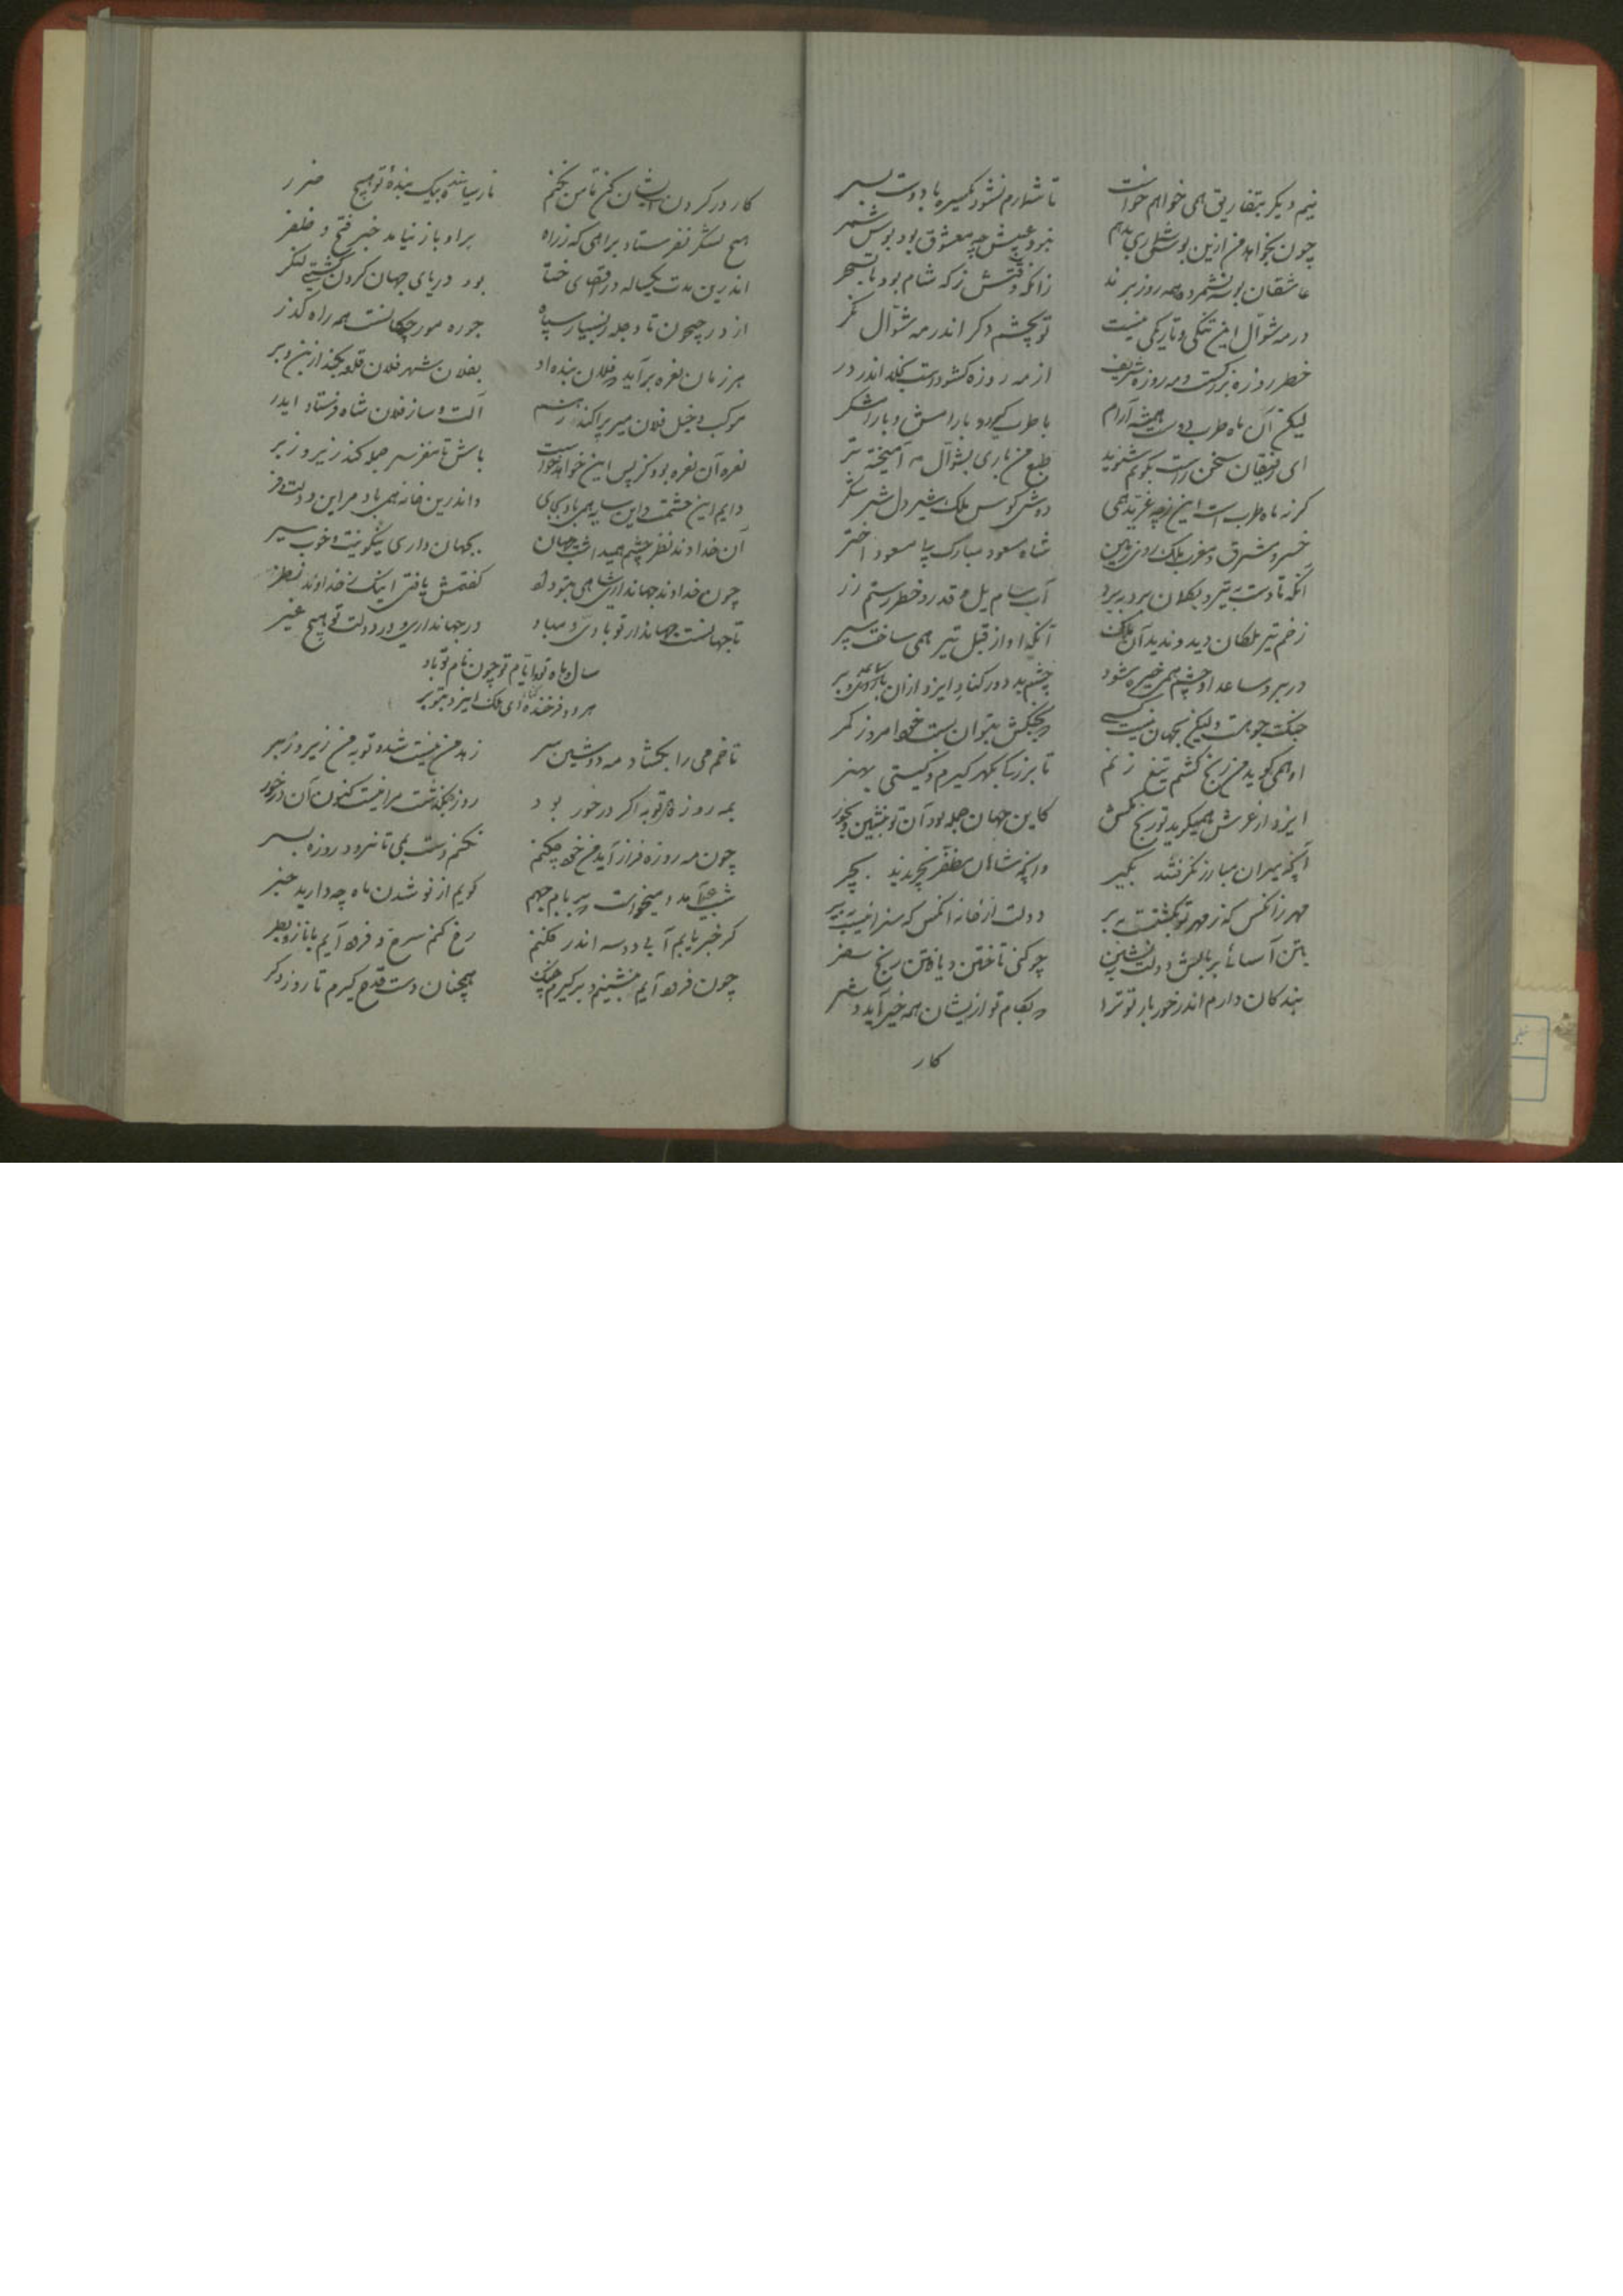 نیم دیگر بتفاریق همی خواهم خواست تا شمارم نشود یکسره با دوست بسر
چون بخواهد من ازین بوسه شماری بدهم نبرد عیش چه معشوق بود بوس شمر
عاشقان بوسه نشمرده بمه روز برند زانکه وقتش زگه شام بود تا بسحر
در مه شوال این تنگی و تاریکی نیست توبچشم دگر اندر مه شوال نگر
خطر روزه بزرگست و مه روزه شریف از مه روزه گشودست بخلد اندر در
لیکن آن ماه طرب دوست همیشه آرام با طرب گیرد با رامش و با رامشگر
ای رفیقان سخن راست بگویم شنوید طبع من باری بشوال به آمیخته تر
گر نه ماه طرب است این زچه غرید همی دوش کوس ملک شیر دل شیر شکر
خسرو مشرق و مغرب ملک روی زمین شاه مسعود مبارک پی مسعود اختر
آنکه تا دست به تیر و بکمان برد ببرد آب سام یل و قدر و خطر رستم زر
زخم تیر ملکان دید و ندید آن ملک آنکه او از قبل تیر همی ساخت سپر
در بر و ساعد او چشم همی خیره شود چشم بد دور کناد ایزد ازان ساعد و بر
جنگ جویست ولیکن بجهان نیست کسی که بجنگش بتوان بست خود امروز کمر
او همی گوید من رنج کشم تیغ زنم تا بزرگی بگهر گیرم و گیتی بهنر
ایزد از عرش همیگوید تو رنج مکش کاین جهان جمله بود آن تو بنشین و بخور
آنچه میران مبارز نگرفتند بگیر وانچه شاهان مظفر نچریدند بچر
مهر زانکس که زمهر تو بگشتست ببر دولت از خانه آنکس که سزا نیست ببر
بتن آسائی بر بالش دولت بنشین چه کنی تاختن و یافتن رنج سفر
بندگان دارم اندر خور بار تو ترا که بکام تو ازیشان همه خیر آید و شر
کار
کار در گردن ایشان کن تا من بکنم نا رسیانیده بیک بنده تو هیچ ضرر
هیچ لشکر نفرستاد براهی که زراه بر او باز نیامد خبر فتح و ظفر
اندرین مدت یکساله در اقصای ختا بود دریای جهان کردن کشتی لنگر
از در جیحون تا دجله ز بسیار سپاه جوره مورچکانست همه راه گذر
هر زمان نعره بر آید که فلان بنده او بفلان شهر فلان قلعه بکند از بن و بر
مرکب و خیل فلان میر پراکند ز هم آلت و ساز فلان شاه فرستاد ایدر
نعره آن نعره بود کز پس این خواهد خواست باش تا نفر سر جمله کند زیر و زبر
دایم این حشمت و این سایه همی باد بجای واندرین خانه همی باد مر این دولت و فر
آن خداوند نظر چشم همیداشت جهان بجهان داری نیکو نیت و خوب سیر
چون خداوند جهاندار شاهی بتو داد گفتمش یافتی اینک ز خداوند نظر
تا جهانست جهاندار تو بادی و مباد در جهانداری و در دولت تو هیچ غیر
سال و ماه تو و ایام تو چون نام تو باد
هر دو فرخنده کناد ای ملک ایزد بتو بر
تا خم می را بگشاد مه دوشین سر زهد من نیست شد و توبه من زیر و زبر
بمه روزه و توبه اگر در خور بود روزه بگذشت مرا نیست کنون آن در خور
چون مه روزه فراز آید من خود چکنم نکنم دست بمی تا نرود روزه بسر
شب عید آمد و میخواست که بر بام جهم گویم از نو شدن ماه چه دارید خبر
گر خبر یابم آبی دو سه اندر فکنم رخ کنم سرخ و فرود آیم با ناز و بطر
چون فرود آیم بنشینم و برگیرم چنگ همچنان دست قدح گیرم تا روز دگر